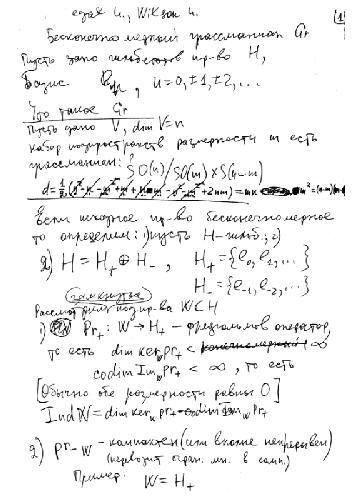 сгал ч., Wilson ч.
[1
Бесконечномерный грассманиан Gr
Пусть дано гильбертово пр-во H,
Базис , n=0,±1,±2,...
Что такое Gr
Пусть дано V, dim V=n
Набор подпространств размерности m есть
грассманиан: SO(n)/SO(m)×S(n-m)
Если исходное пр-во бесконечномерное
то определим: 1) пусть H-гильб.; 2)
2) H = H₊ ⊕ H₋, H₊ = {e₀, e₁, ...}
H₋ = {e₋₁, e₋₂, ...}
замкнутые
Рассмотрим подпр-ва W⊂H
1) pr₊ : W → H₊ - фредгольмов оператор,
то есть dim ker_W pr₊ < ∞
codim Im_W pr₊ < ∞, то есть
[Обычно обе размерности равны 0]
Ind W = dim ker_W pr₊ - codim Im_W pr₊
2) pr₋W - компактен (или вполне непрерывен)
(переводит огран. мн. в комп.)
Пример: W = H₊